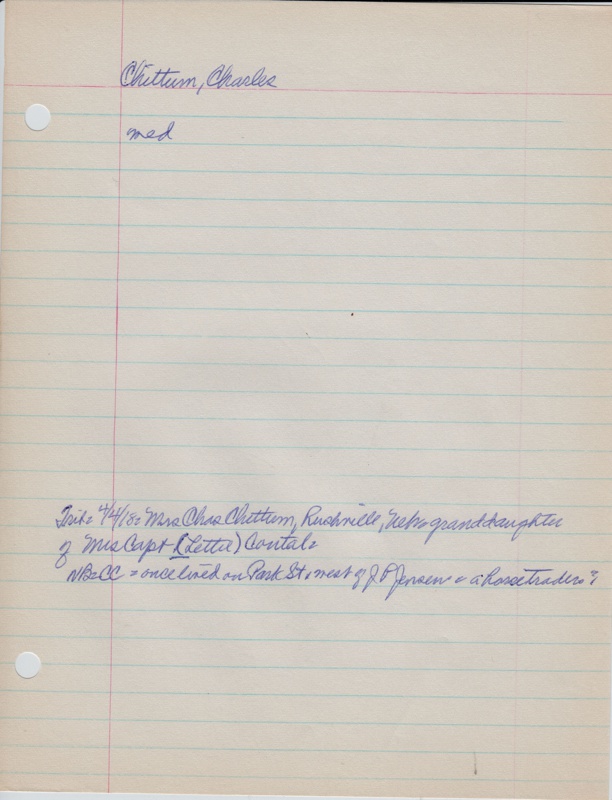 Chittum, Charles
med
Trib= 4/4/18= Mrs Chas Chittum, Rushville, Nebr= granddaughter
of Mrs Capt (Letta) Coutal=
NB=CC = once lived on Park St, west of J P Jensen = a horsetrader=?